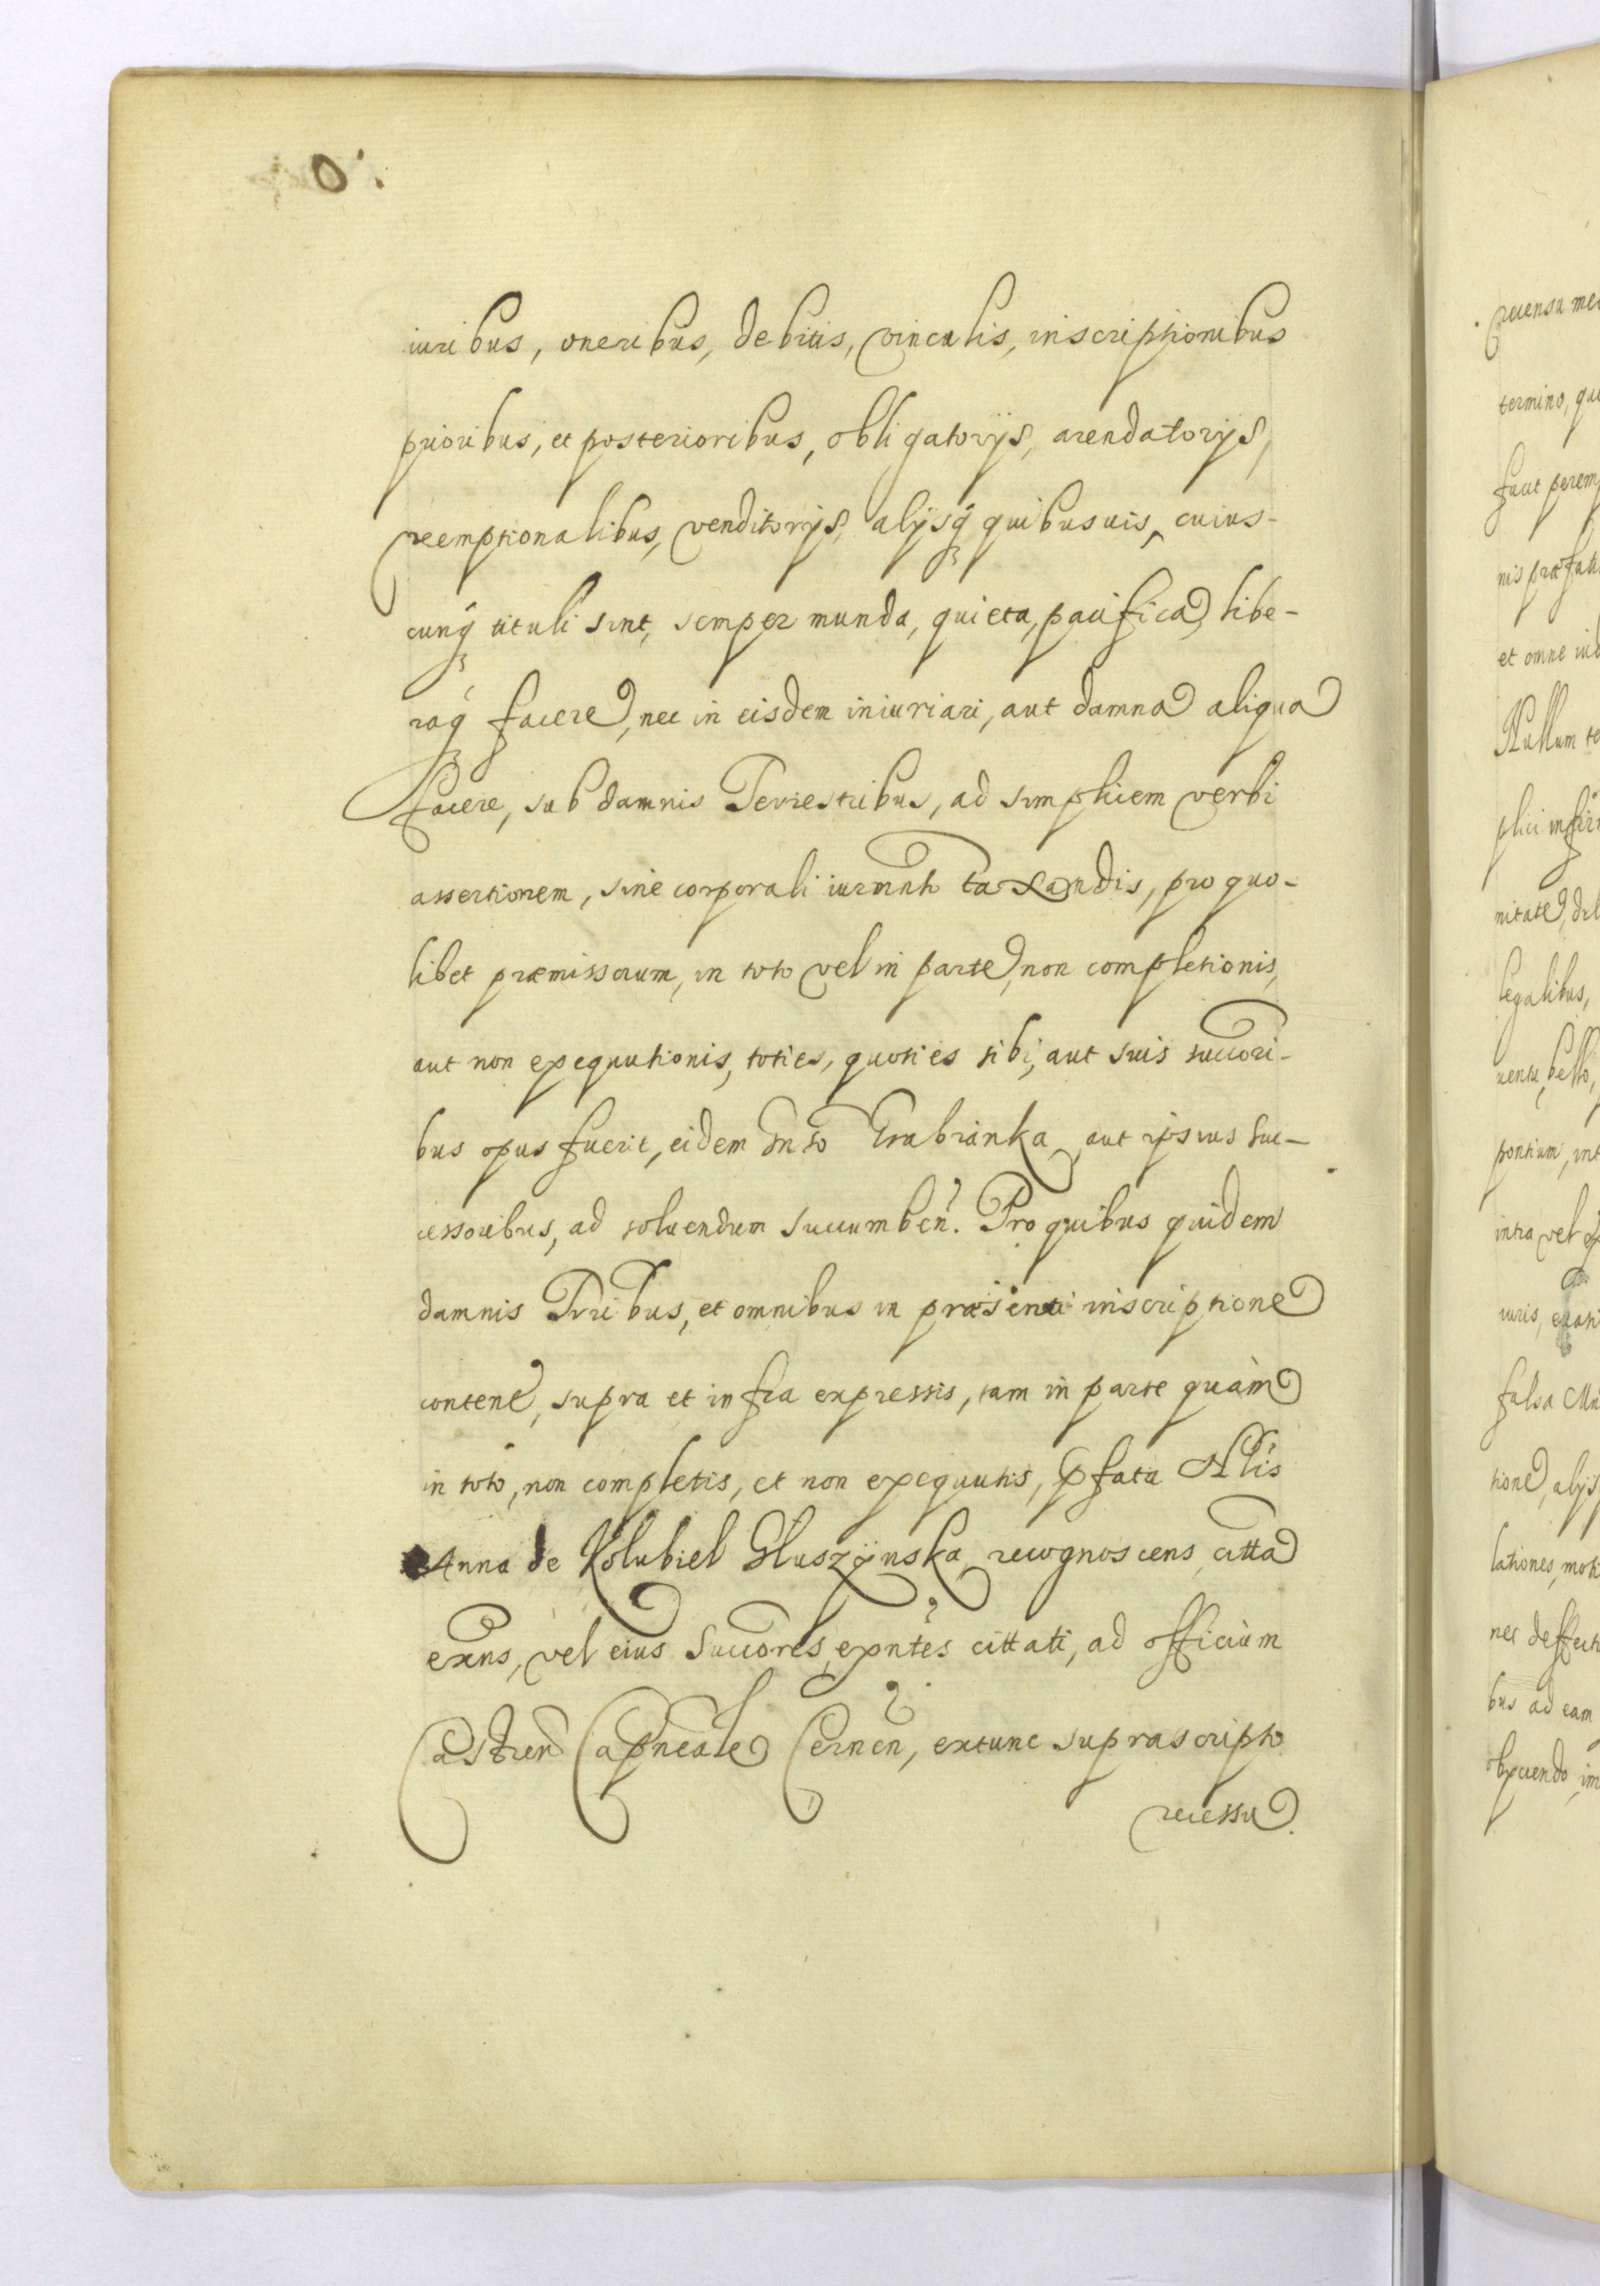 iuribus, oneribus, debitis, vinculis, inscriptionibus
prioribus, et posterioribus, obligatorijs, arendatorijs,
reemptionalibus, venditorijs, alijsq́ quibusuis, cuius-
cunq́ tituli sint, semper munda, quieta, pacifica, libe-
raq́ facere, nec in eisdem iniuriari, aut damna aliqua
facere, sub damnis Terrestribus, ad simplicem verbi
assertionem, sine corporali iurmnto taxandis, pro quo-
libet præmissorum, in toto vel in parte, non completionis,
aut non exequutionis, toties, quoties sibi, aut suis succori-
bus opus fuerit, eidem Gnso Grabianka, aut ipsius suc-
cessoribus, ad soluendum succumben. Pro quibus quidem
damnis Trribus, et omnibus in præsenti inscriptione
content, supra et infra expressis, tam in parte quàm
in toto, non completis, et non exequutis, pfata Nlis
Anna de Kolubiel Gluszÿnska, recognoscens, citta
exns, vel eius Succores, exntes cittati, ad officium
Castren Capneale Cernen, extunc suprascripto
recessu.
cuensu
termino,
facit
et omne
Nullum
nitate,
legalibus,
bello,
pontium,
intra vel
iuris,
falsa
tione, alijs
lationes,
nec
bus ad eam